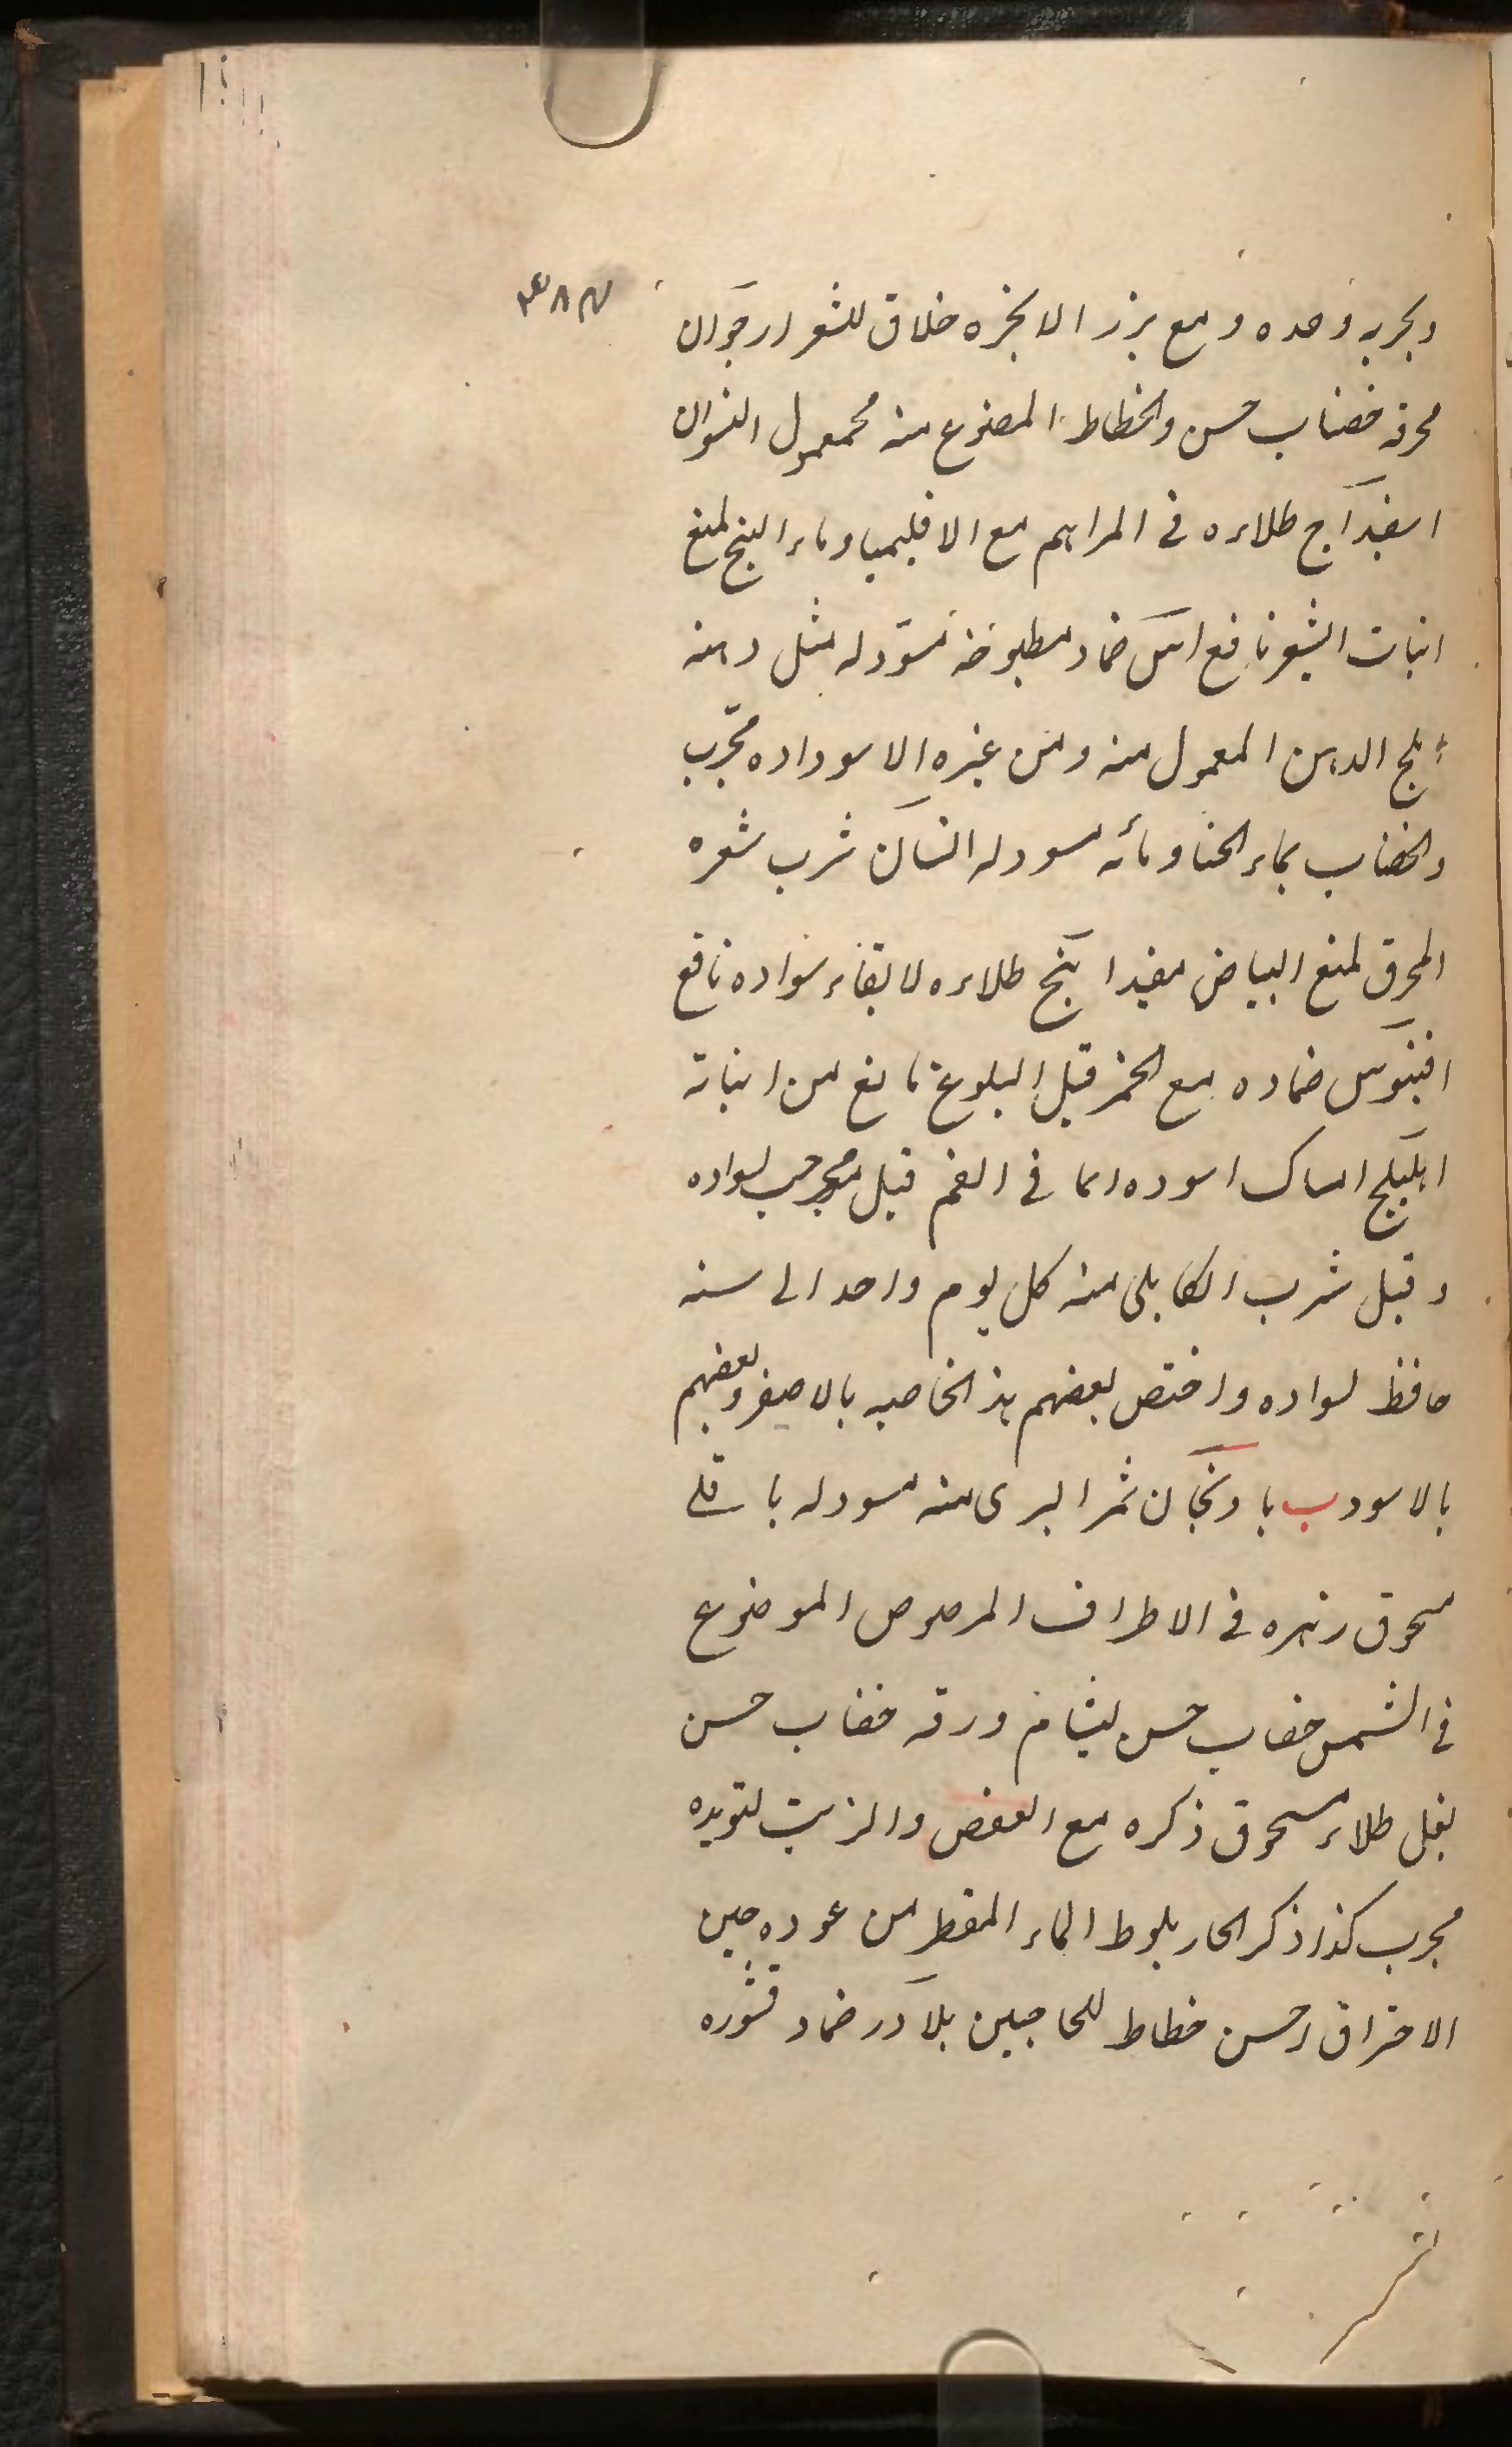 وبحربه وحده ومع بزر الانجره حلاق للشعر ارجوان
محرقه خضاب حسن والخطاط المصنوع منه محمعمول النسوان
اسفيداج طلاءه في المراهم مع الاقليميا وماء البنج لمنع
انبات الشعر نافع اس ضماد مطبوخه مسود له مثل دهنه
املج الدهن المعمول منه ومن غيره الاسود اده مجرب
والخضاب بماء الحنا ومائه مسود له انسان شرب شعره
المحرق لمنع البياض مفيد ابنج طلاءه لابقاء سواده نافع
افينوس ضماده مع الخمر قبل البلوغ مانع من انباته
اهليلج امساك اسوده دائما في الفم قبل مجرب لسواده
وقبل شرب الكابلى منه كل يوم واحد الى سنه
حافظ لسواده واختص بعضهم هذ الخاصيه بالاصفر وبعضهم
بالاسود ب بادنجان ثمر البرى منه مسود له باقلى
مسحوق زهره في الاطراف المرصوص الموضوع
في الشمس خضاب حسن بشام ورقه خضاب حسن
بغل طلاء مسحوق ذكره مع العفص والزيت لتسويده
مجرب كذا ذكر الحار بلوط الماء المقطر من عوده حين
الاحراق احسن خطاط للحاجبين بلادر ضماد قشوره